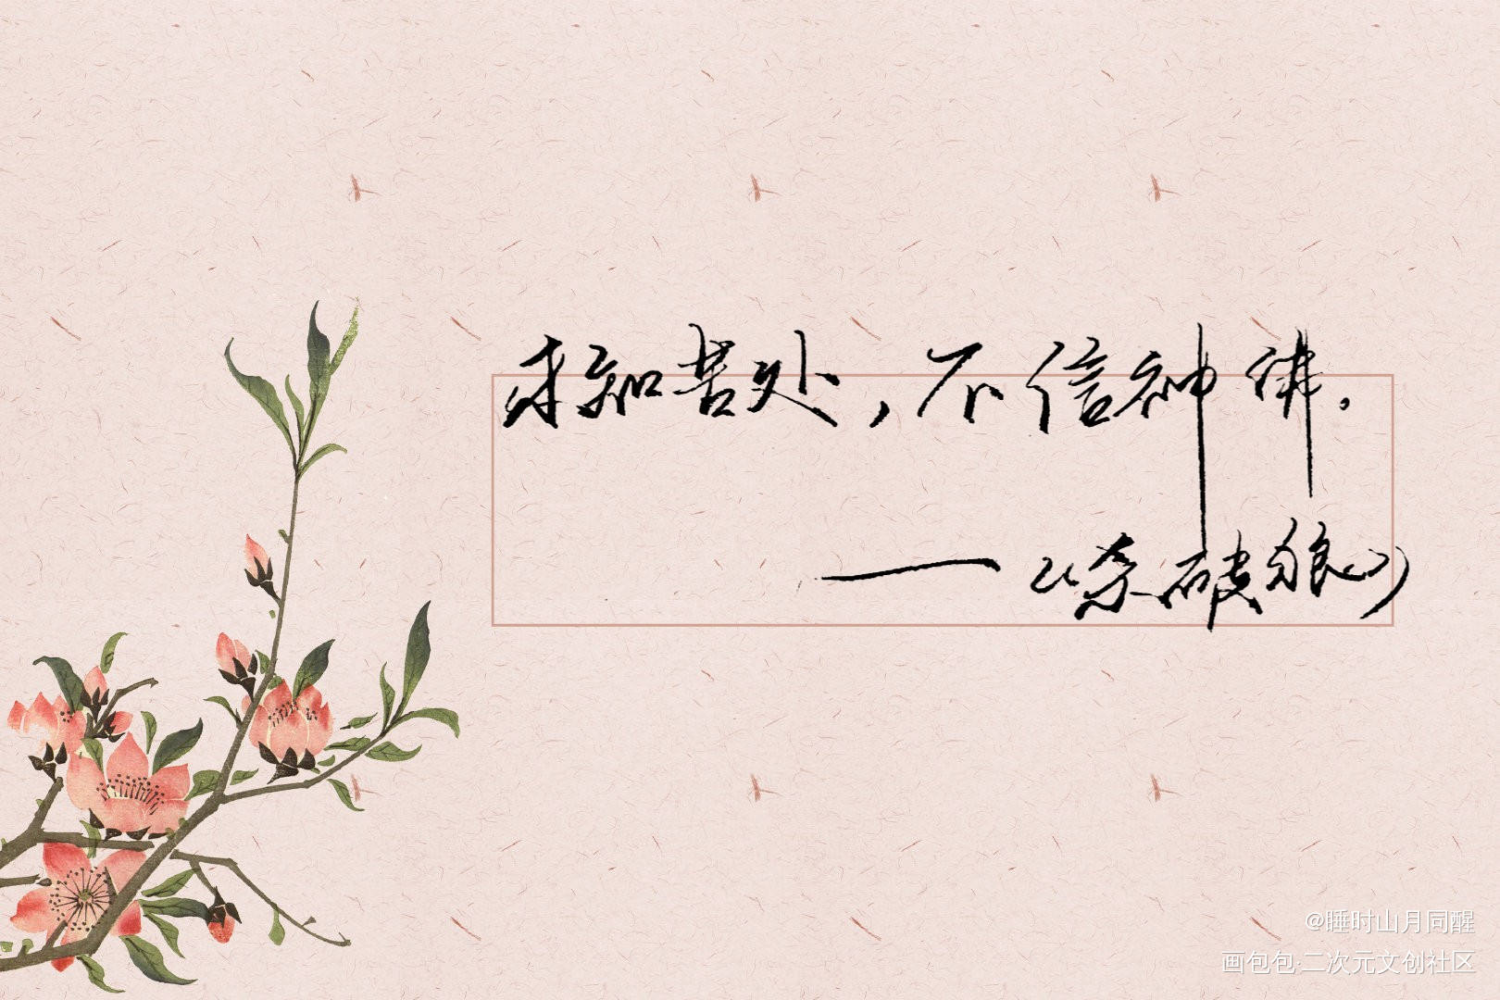 未知苦处，不信神佛。
——《杀破狼》
@睡时山月同醒
画包包·二次元文创社区